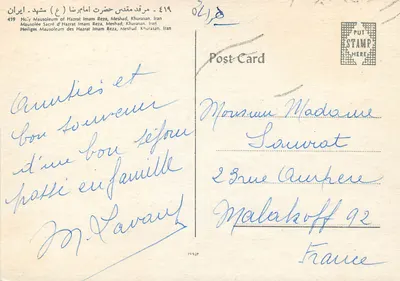 ٤١٩ - مرقد مقدس حضرت امام رضا (ع) مشهد - ایران
419 Holy Mausoleum of Hazrat Imam Reza, Meshad, Khorasan, Iran
Mausolée Sacré d'Hazrat Imam Reza, Meshad, Khorasan, Iran
Heiliges Mausoleum des Hazrat Imam Reza, Meshad, Khorasan, Iran
Amitiés et
bon souvenir
d'un bon séjour
passé en famille
Post Card
PUT
STAMP
HERE
Monsieur Madame
23 rue Ampère
Malakoff 92
France